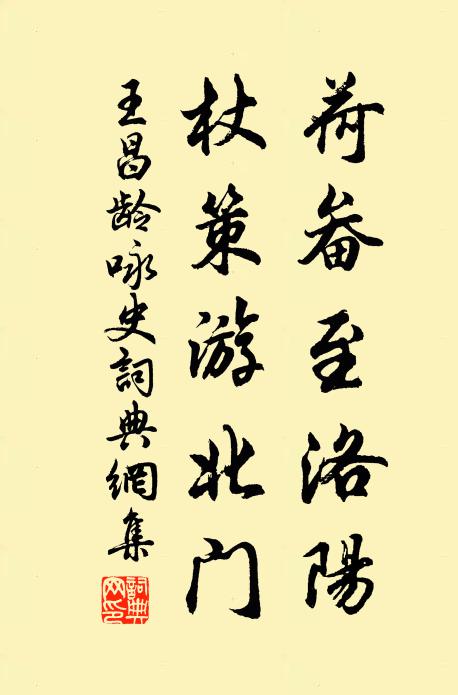 荷畚至洛陽
杖策游北门
王昌龄咏史詞典網集
詞典网印